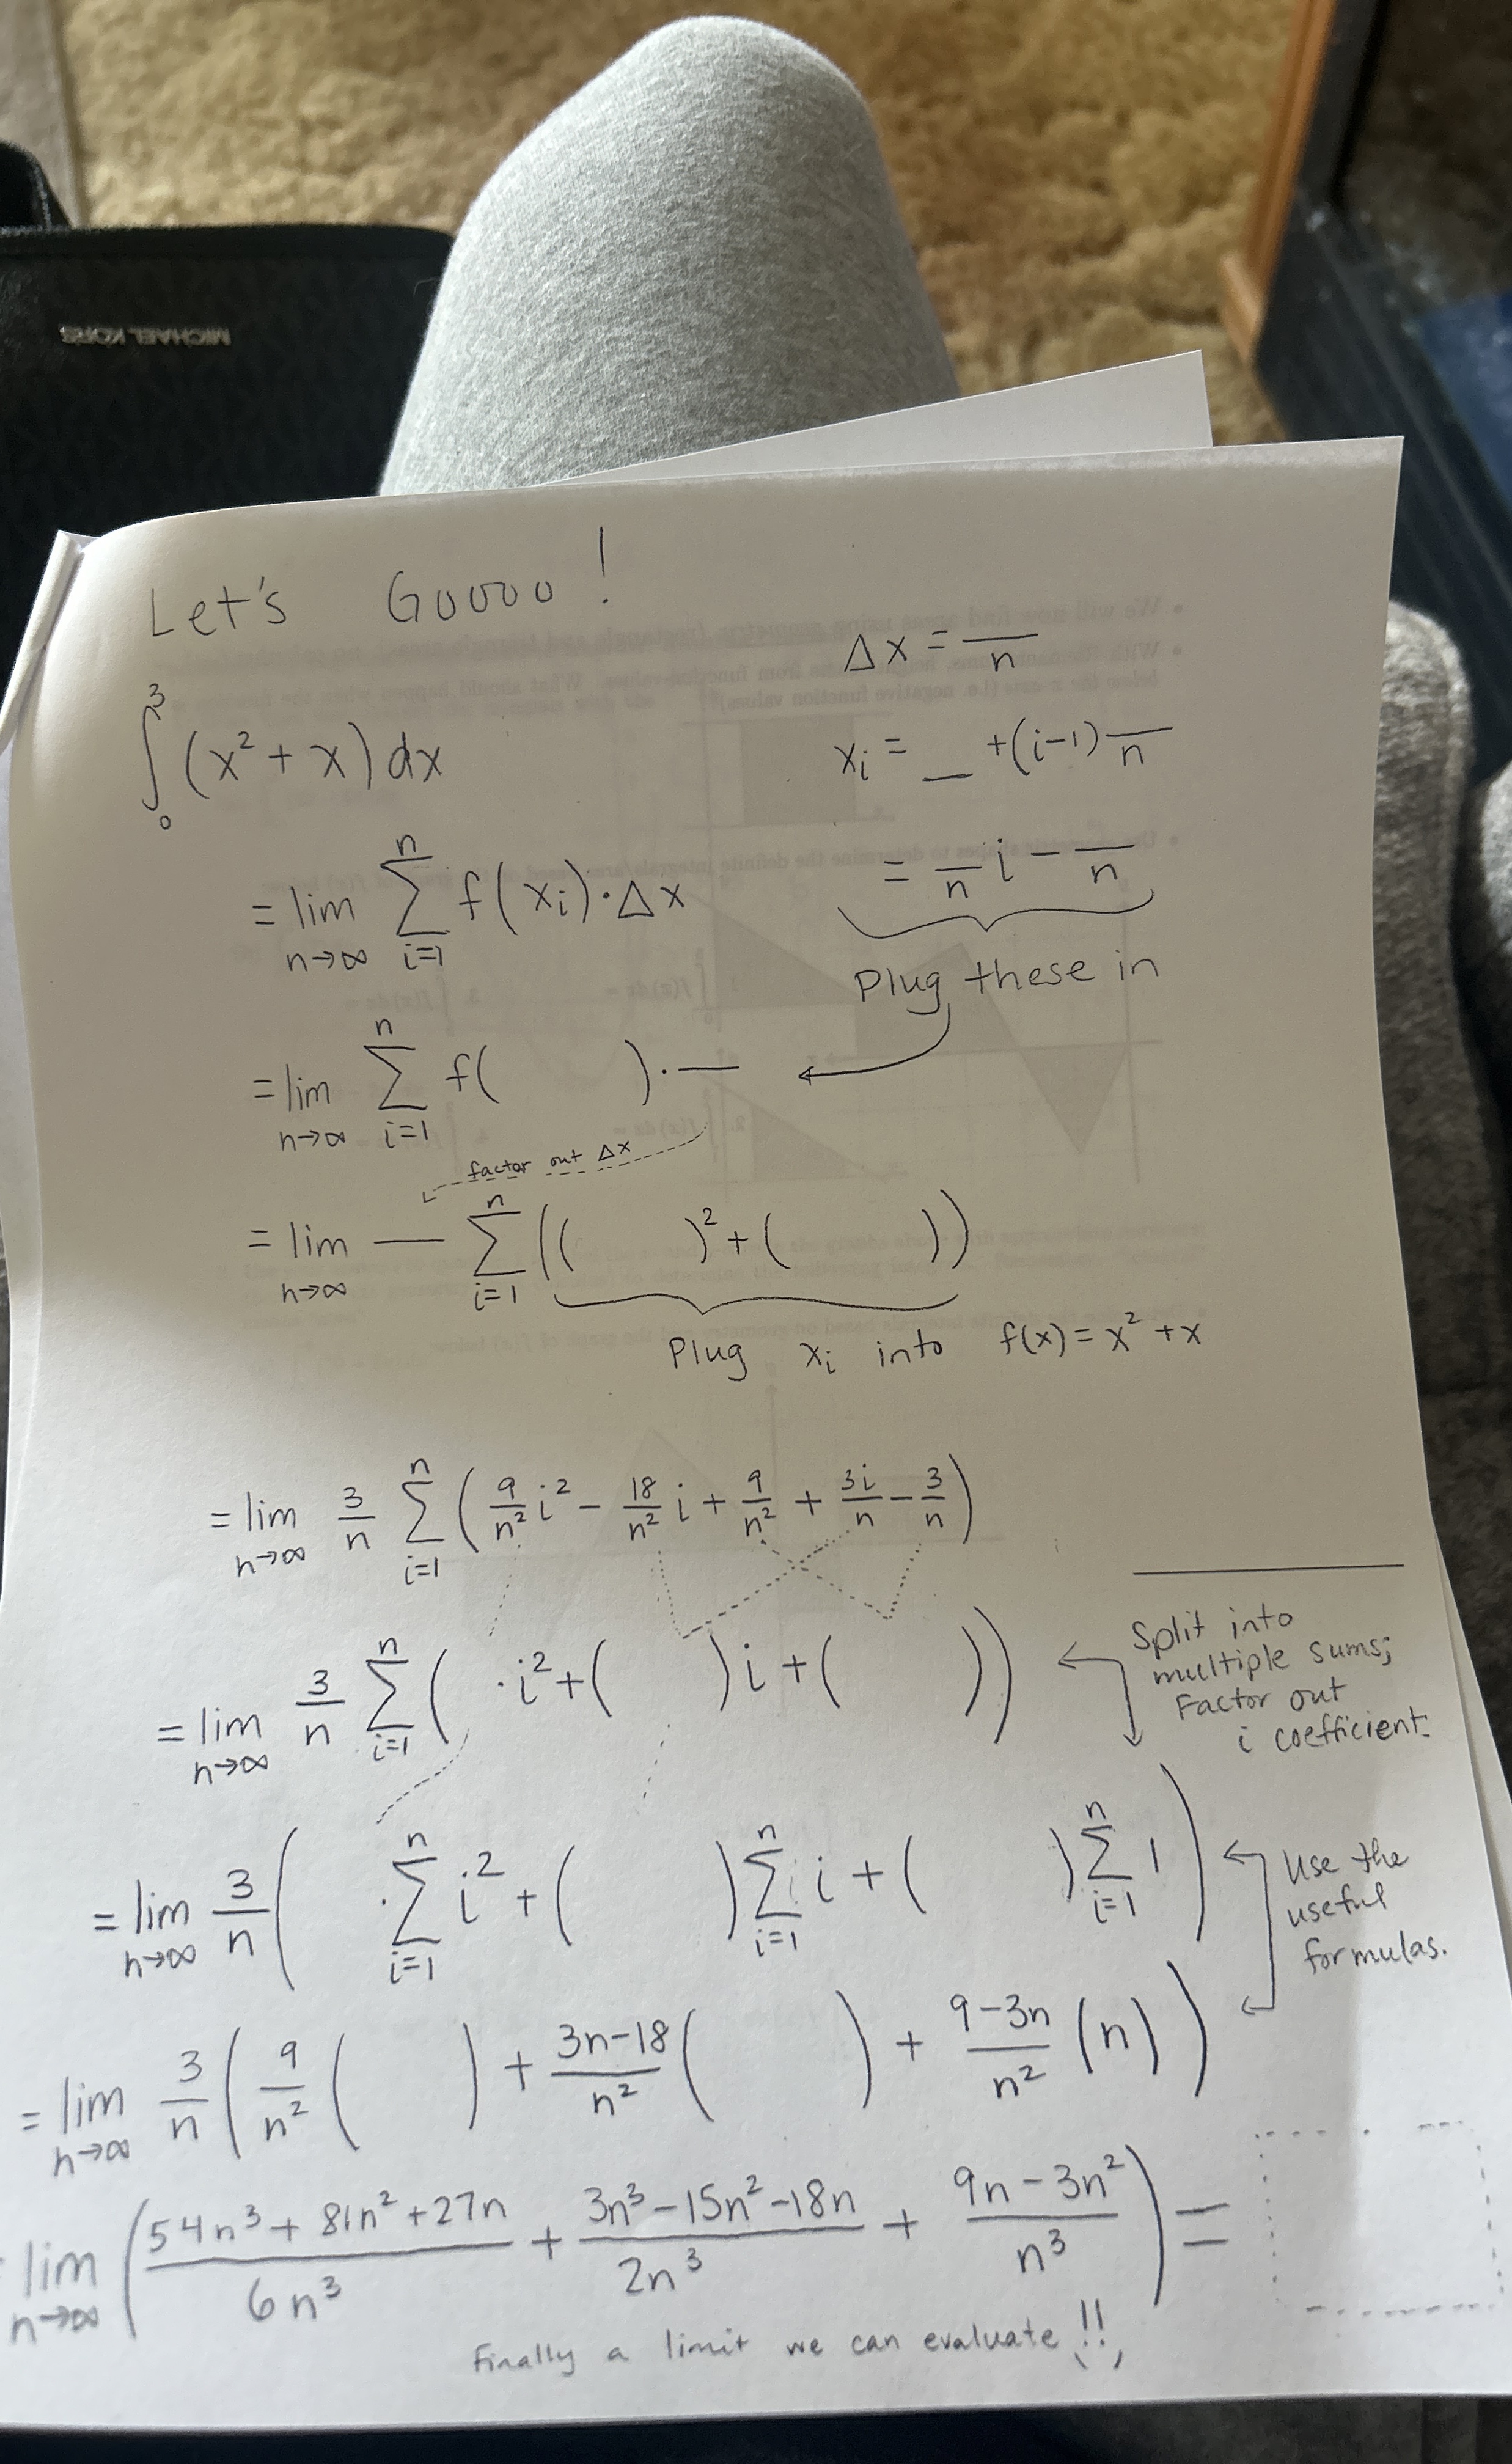 MICHAEL KORS
Let's Goooo!
∫₀³ (x² + x) dx
Δx = __/n
xᵢ = __ + (i-1) __/n
= __/n i - __/n
Plug these in
= lim n→∞ Σ i=1 n f(xᵢ)·Δx
= lim n→∞ Σ i=1 n f(    )·—
factor out Δx
= lim n→∞ — Σ i=1 n ((    )² + (    ))
Plug xᵢ into f(x) = x² + x
= lim n→∞ 3/n Σ i=1 n (9/n² i² - 18/n² i + 9/n² + 3i/n - 3/n)
= lim n→∞ 3/n Σ i=1 n (  ·i² + (    )i + (    ))
Split into
multiple sums;
Factor out
i coefficient.
= lim n→∞ 3/n (  ·Σ i=1 n i² + (    ) Σ i=1 n i + (    ) Σ i=1 n 1)
Use the
useful
formulas.
= lim n→∞ 3/n (9/n² (    ) + 3n-18/n² (    ) + 9-3n/n² (n))
= lim n→∞ (54n³ + 81n² + 27n/6n³ + 3n³ - 15n² - 18n/2n³ + 9n - 3n²/n³) =
Finally a limit we can evaluate!!